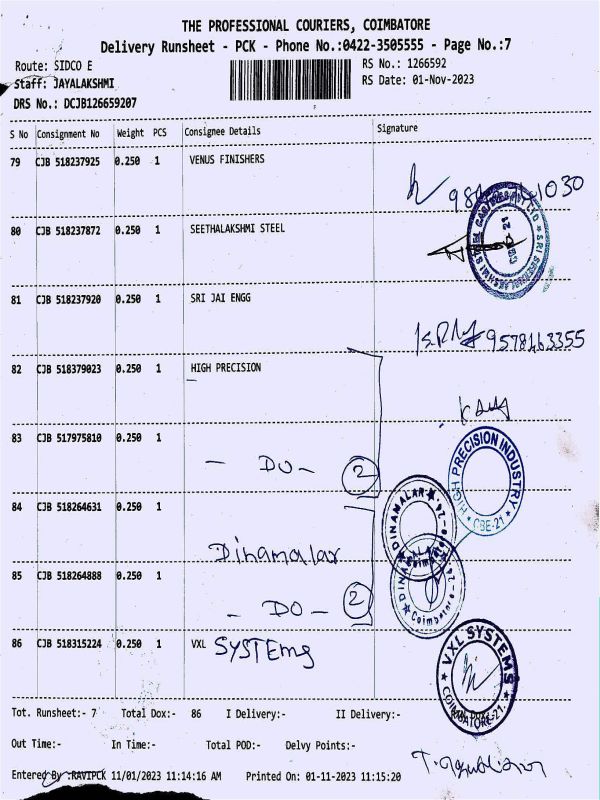 THE PROFESSIONAL COURIERS, COIMBATORE
Delivery Runsheet - PCK - Phone No.:0422-3505555 - Page No.:7
Route: SIDCO E RS No.: 1266592
Staff: JAYALAKSHMI RS Date: 01-Nov-2023
DRS No.: DCJB126659207
S No Consignment No Weight PCS Consignee Details Signature
79 CJB 518237925 0.250 1 VENUS FINISHERS
1030
80 CJB 518237872 0.250 1 SEETHALAKSHMI STEEL
81 CJB 518237920 0.250 1 SRI JAI ENGG
9578163355
82 CJB 518379023 0.250 1 HIGH PRECISION
83 CJB 517975810 0.250 1
- DO - 2
HIGH PRECISION INDUSTRY
CBE-21
84 CJB 518264631 0.250 1
DINAMALAR
Dinamalar
85 CJB 518264888 0.250 1
- DO - 2
Coimbatore-24
86 CJB 518315224 0.250 1 VXL SYSTEMS
VXL SYSTEMS
Tot. Runsheet:- 7 Total Dox:- 86 I Delivery:- II Delivery:-
Out Time:- In Time:- Total POD:- Delvy Points:-
Entered By :RAVIPCK 11/01/2023 11:14:16 AM Printed On: 01-11-2023 11:15:20